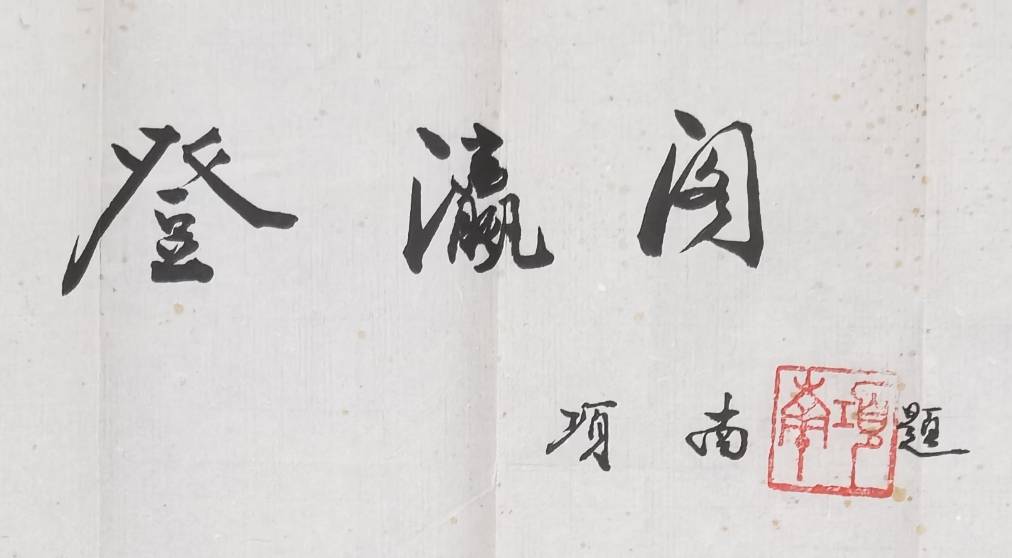 登瀛阁
项南 题
项南